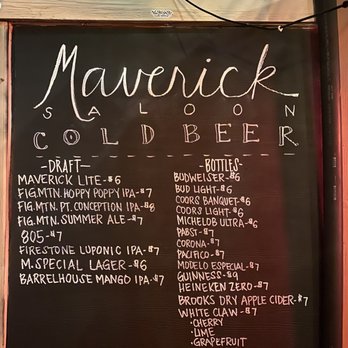 Maverick
SALOON
COLD BEER
-DRAFT-
MAVERICK LITE-$6
FIG.MTN. HOPPY POPPY IPA-$7
FIG.MTN. PT. CONCEPTION IPA-$8
FIG.MTN. SUMMER ALE-$7
805-$7
FIRESTONE LUPONIC IPA-$7
M.SPECIAL LAGER-$6
BARRELHOUSE MANGO IPA-$7
-BOTTLES-
BUDWEISER-$6
BUD LIGHT-$6
COORS BANQUET-$6
COORS LIGHT-$6
MICHELOB ULTRA-$6
PABST-$7
CORONA-$7
PACIFICO-$7
MODELO ESPECIAL-$7
GUINNESS-$9
HEINEKEN ZERO-$7
BROOKS DRY APPLE CIDER-$7
WHITE CLAW-$7
·CHERRY
·LIME
·GRAPEFRUIT